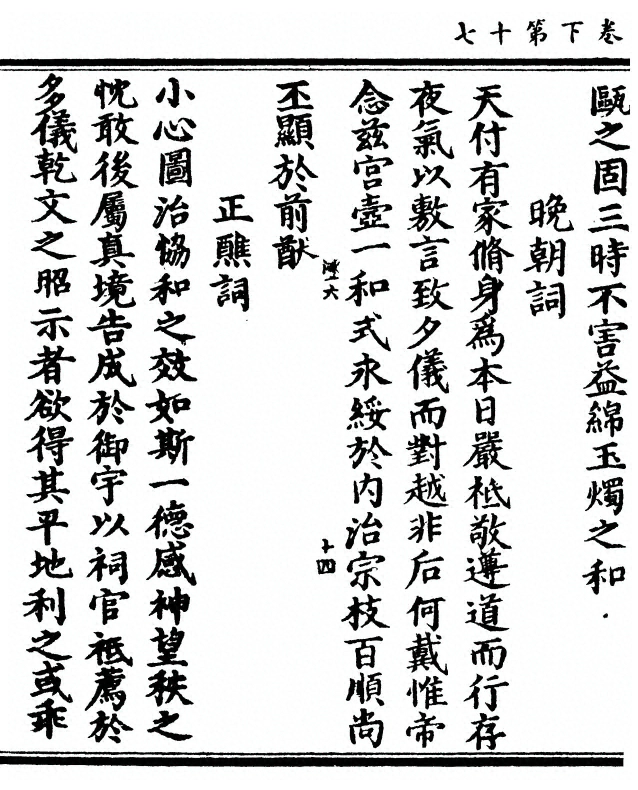 卷下第十七
甌之固三時不害益綿玉燭之和
晚朝詞
天付有家脩身爲本日嚴祗敬遵道而行存
夜氣以敷言致夕儀而對越非后何戴惟帝
念茲宮壼一和式永綏於內治宗枝百順尚
十四
丕顯於前猷
正醮詞
小心圖治恊和之效如斯一德感神望秩之
忱敢後屬真境告成於御宇以祠官祗薦於
多儀乾文之昭示者欲得其平地利之或乖